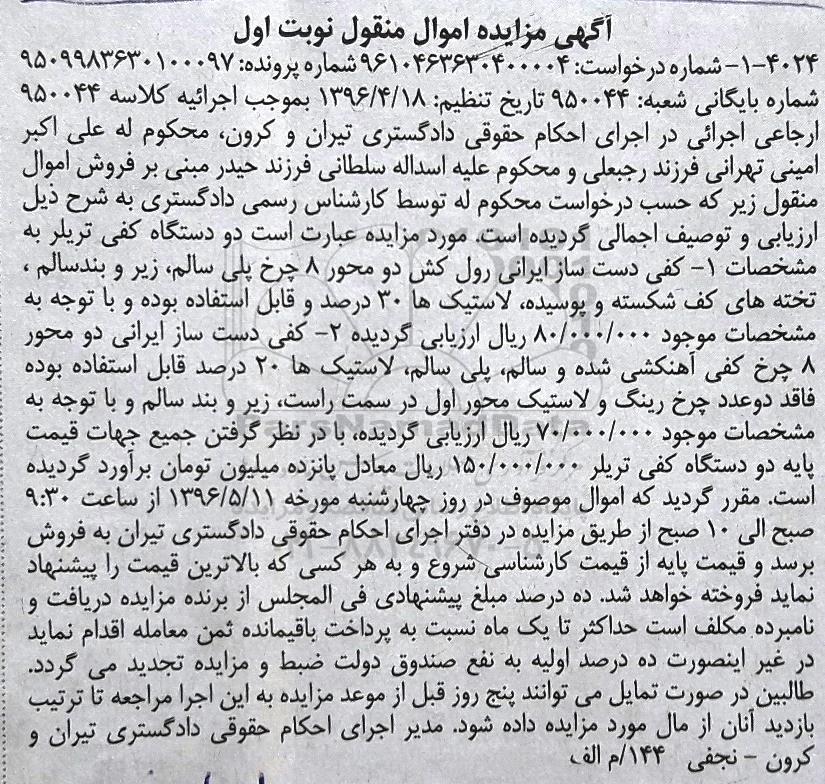 آگهی مزایده اموال منقول نوبت اول
۱-۴۰۲۴- شماره درخواست: ۹۶۱۰۴۶۳۶۳۰۴۰۰۰۰۴ شماره پرونده: ۹۵۰۹۹۸۳۶۳۰۱۰۰۰۹۷
شماره بایگانی شعبه: ۹۵۰۰۴۴ تاریخ تنظیم: ۱۳۹۶/۴/۱۸ بموجب اجرائیه کلاسه ۹۵۰۰۴۴
ارجاعی اجرائی در اجرای احکام حقوقی دادگستری تیران و کرون، محکوم له علی اکبر
امینی تهرانی فرزند رجبعلی و محکوم علیه اسداله سلطانی فرزند حیدر مبنی بر فروش اموال
منقول زیر که حسب درخواست محکوم له توسط کارشناس رسمی دادگستری به شرح ذیل
ارزیابی و توصیف اجمالی گردیده است. مورد مزایده عبارت است دو دستگاه کفی تریلر به
مشخصات ۱- کفی دست ساز ایرانی رول کش دو محور ۸ چرخ پلی سالم، زیر و بندسالم ،
تخته های کف شکسته و پوسیده، لاستیک ها ۳۰ درصد و قابل استفاده بوده و با توجه به
مشخصات موجود ۸۰/۰۰۰/۰۰۰ ریال ارزیابی گردیده ۲- کفی دست ساز ایرانی دو محور
۸ چرخ کفی آهنکشی شده و سالم، پلی سالم، لاستیک ها ۲۰ درصد قابل استفاده بوده
فاقد دوعدد چرخ رینگ و لاستیک محور اول در سمت راست، زیر و بند سالم و با توجه به
مشخصات موجود ۷۰/۰۰۰/۰۰۰ ریال ارزیابی گردیده، با در نظر گرفتن جمیع جهات قیمت
پایه دو دستگاه کفی تریلر ۱۵۰/۰۰۰/۰۰۰ ریال معادل پانزده میلیون تومان برآورد گردیده
است. مقرر گردید که اموال موصوف در روز چهارشنبه مورخه ۱۳۹۶/۵/۱۱ از ساعت ۹:۳۰
صبح الی ۱۰ صبح از طریق مزایده در دفتر اجرای احکام حقوقی دادگستری تیران به فروش
برسد و قیمت پایه از قیمت کارشناسی شروع و به هر کسی که بالاترین قیمت را پیشنهاد
نماید فروخته خواهد شد. ده درصد مبلغ پیشنهادی فی المجلس از برنده مزایده دریافت و
نامبرده مکلف است حداکثر تا یک ماه نسبت به پرداخت باقیمانده ثمن معامله اقدام نماید
در غیر اینصورت ده درصد اولیه به نفع صندوق دولت ضبط و مزایده تجدید می گردد.
طالبین در صورت تمایل می توانند پنج روز قبل از موعد مزایده به این اجرا مراجعه تا ترتیب
بازدید آنان از مال مورد مزایده داده شود. مدیر اجرای احکام حقوقی دادگستری تیران و
کرون - نجفی ۱۴۴/م الف
ParsNamadData